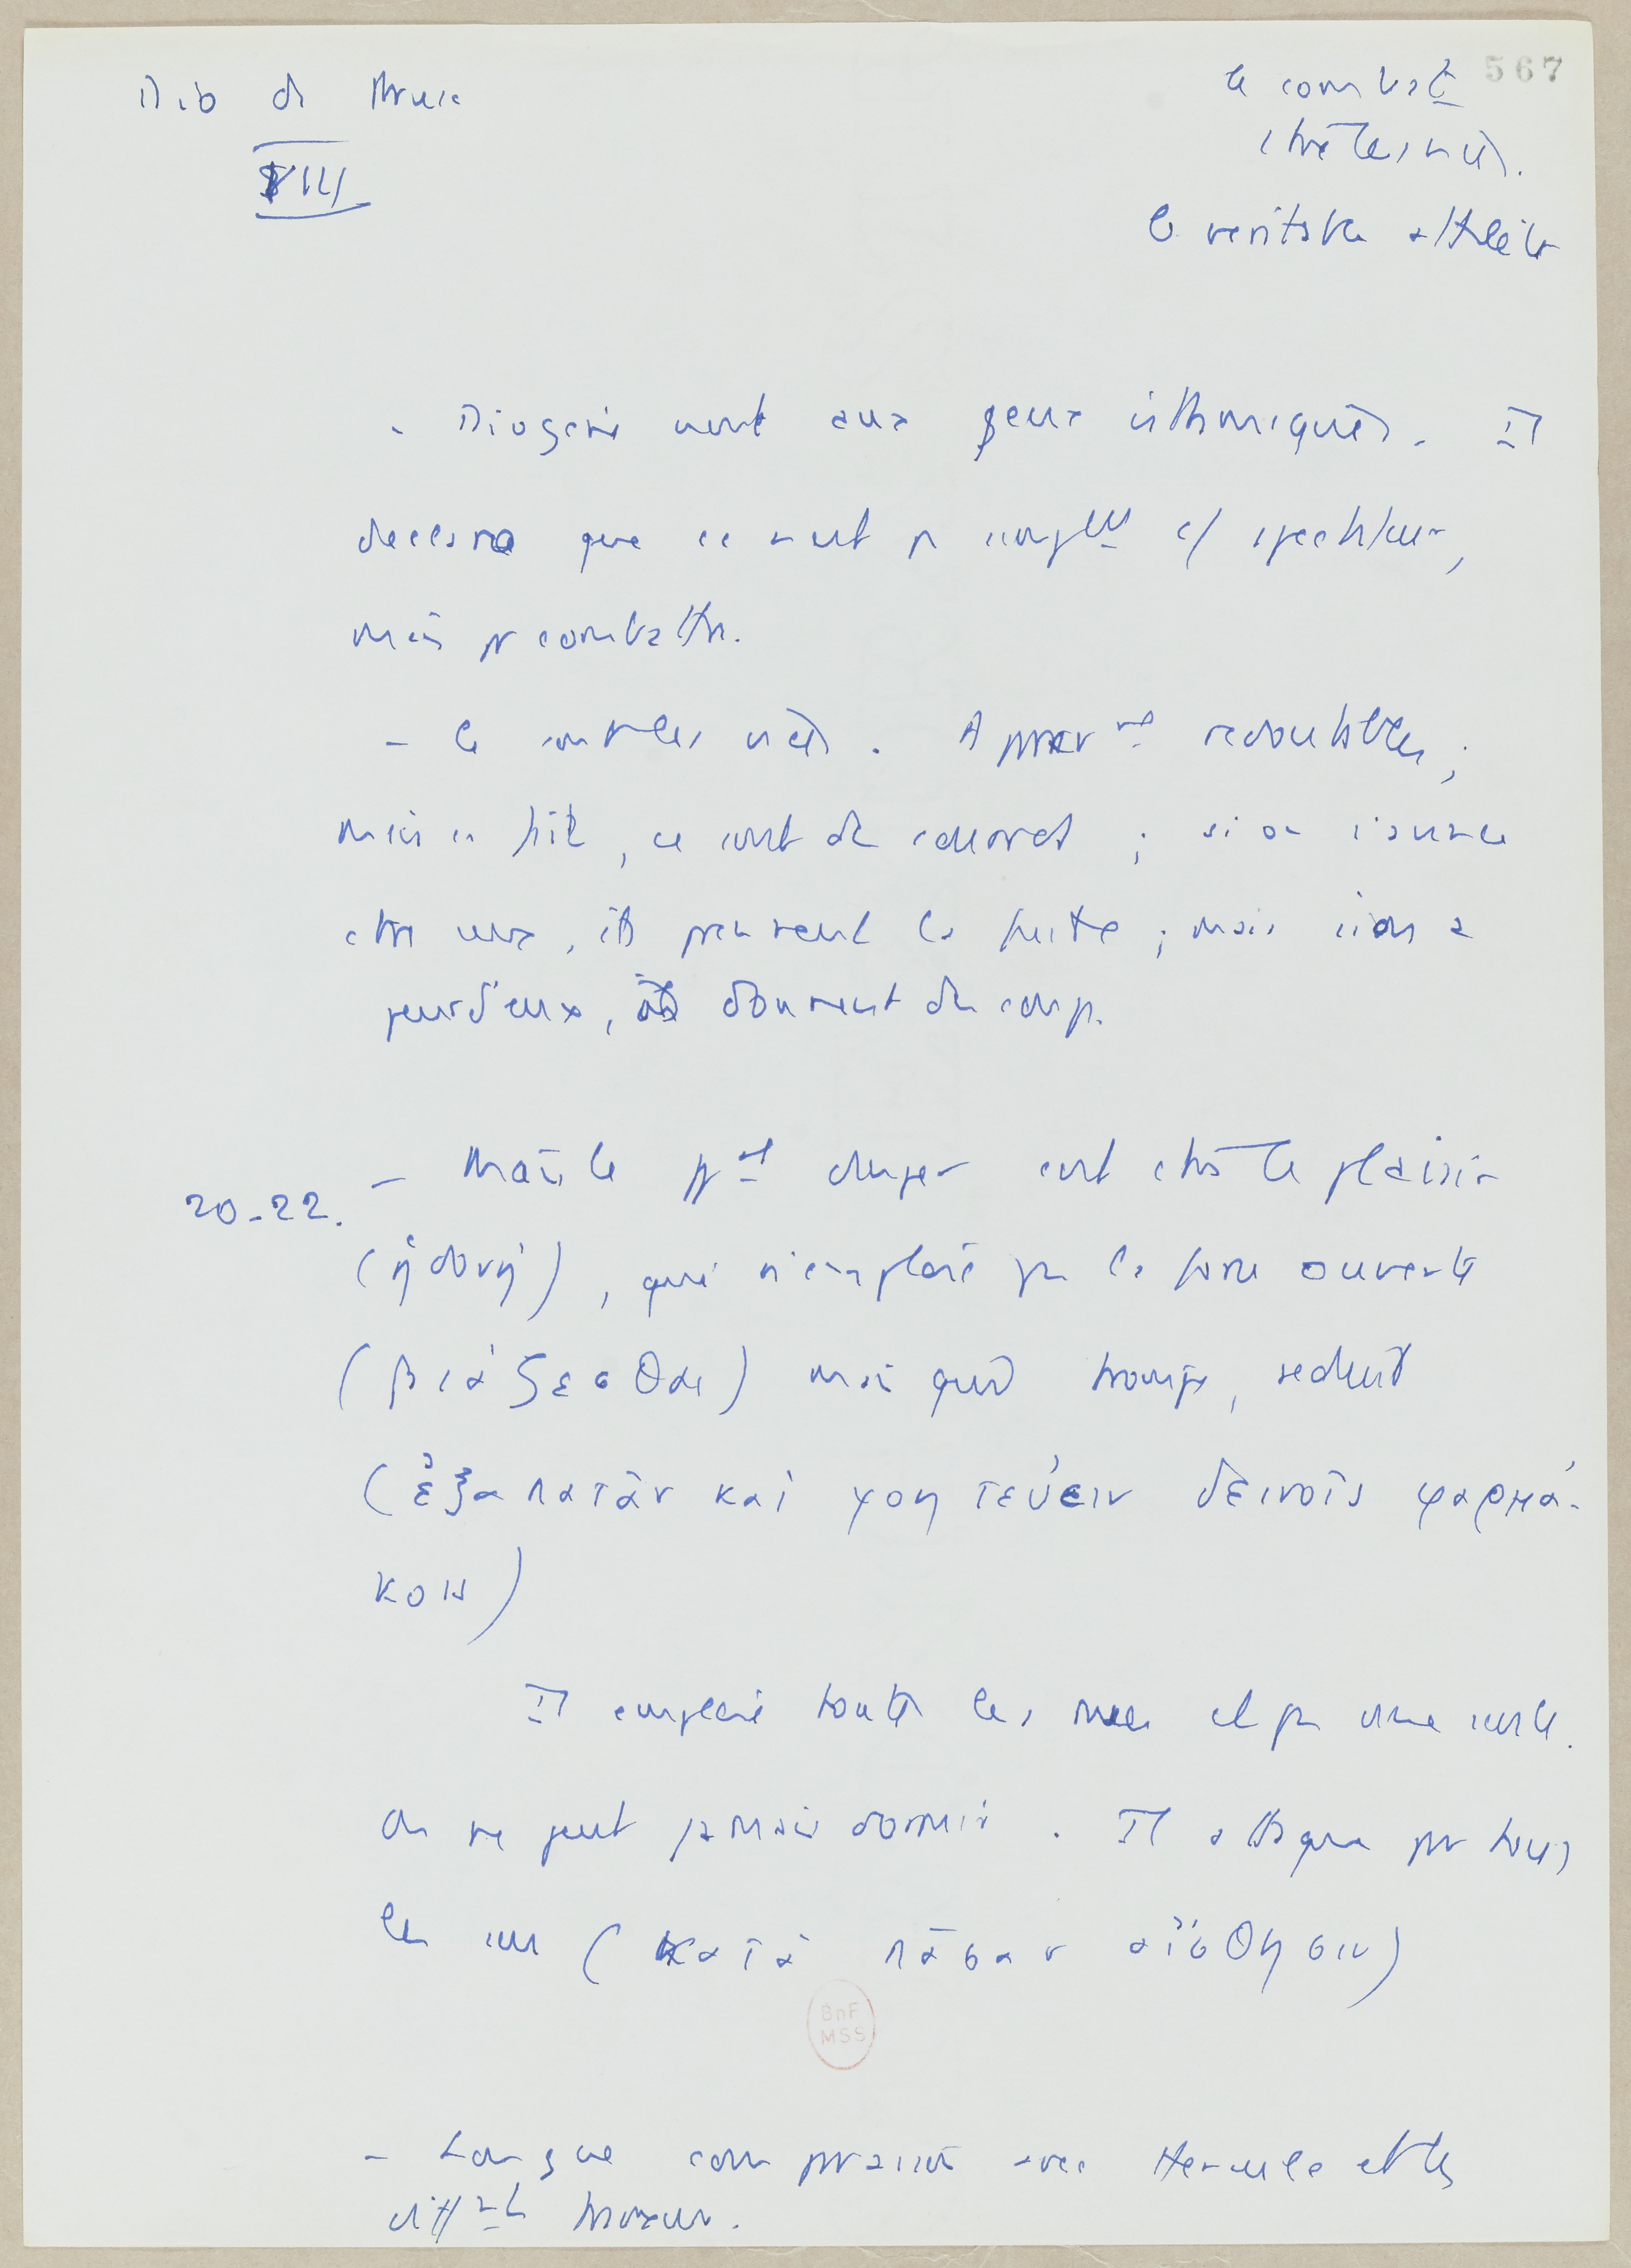 Dio de Pruse
VIII
567
le combat
ctre les vices.
le véritable athlète
- Diogène vient aux jeux isthmiques. Il
declare que ce n'est pas simplt c/ spectateur,
mais pr combattre.
- le contre les vices. Apparemt redoutables ;
mais en fait, ce sont des couards ; si on s'avance
ctre eux, ils prennent la fuite ; mais si on a
peur d'eux, ils donnent des coups.
20-22.
- Mais le ppal danger est ctre le plaisir
(ἡδονή), qui n'emploie pas la force ouverte
(βιάζεσθαι) mais qui trompe, séduit
(ἐξαπατᾶν καὶ γοητεύειν δεινοῖς φαρμά-
κοις)
Il emploie toutes les ruses et pas une seule.
On ne peut jamais dormir. Il attaque par tous
les sens (κατὰ πᾶσαν αἴσθησιν)
BnF
MSS
- Longue comparaison avec Hercule et les
diffents travaux.